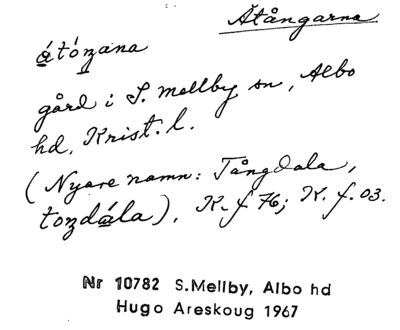 Åtångarna
átóŋana
gård i S. Mellby sn, Albo
hd, Krist. l.
(Nyare namn: Tångdala,
toŋdála), K. f 76; K. f. 03.
Nr 10782 S.Mellby, Albo hd
Hugo Areskoug 1967